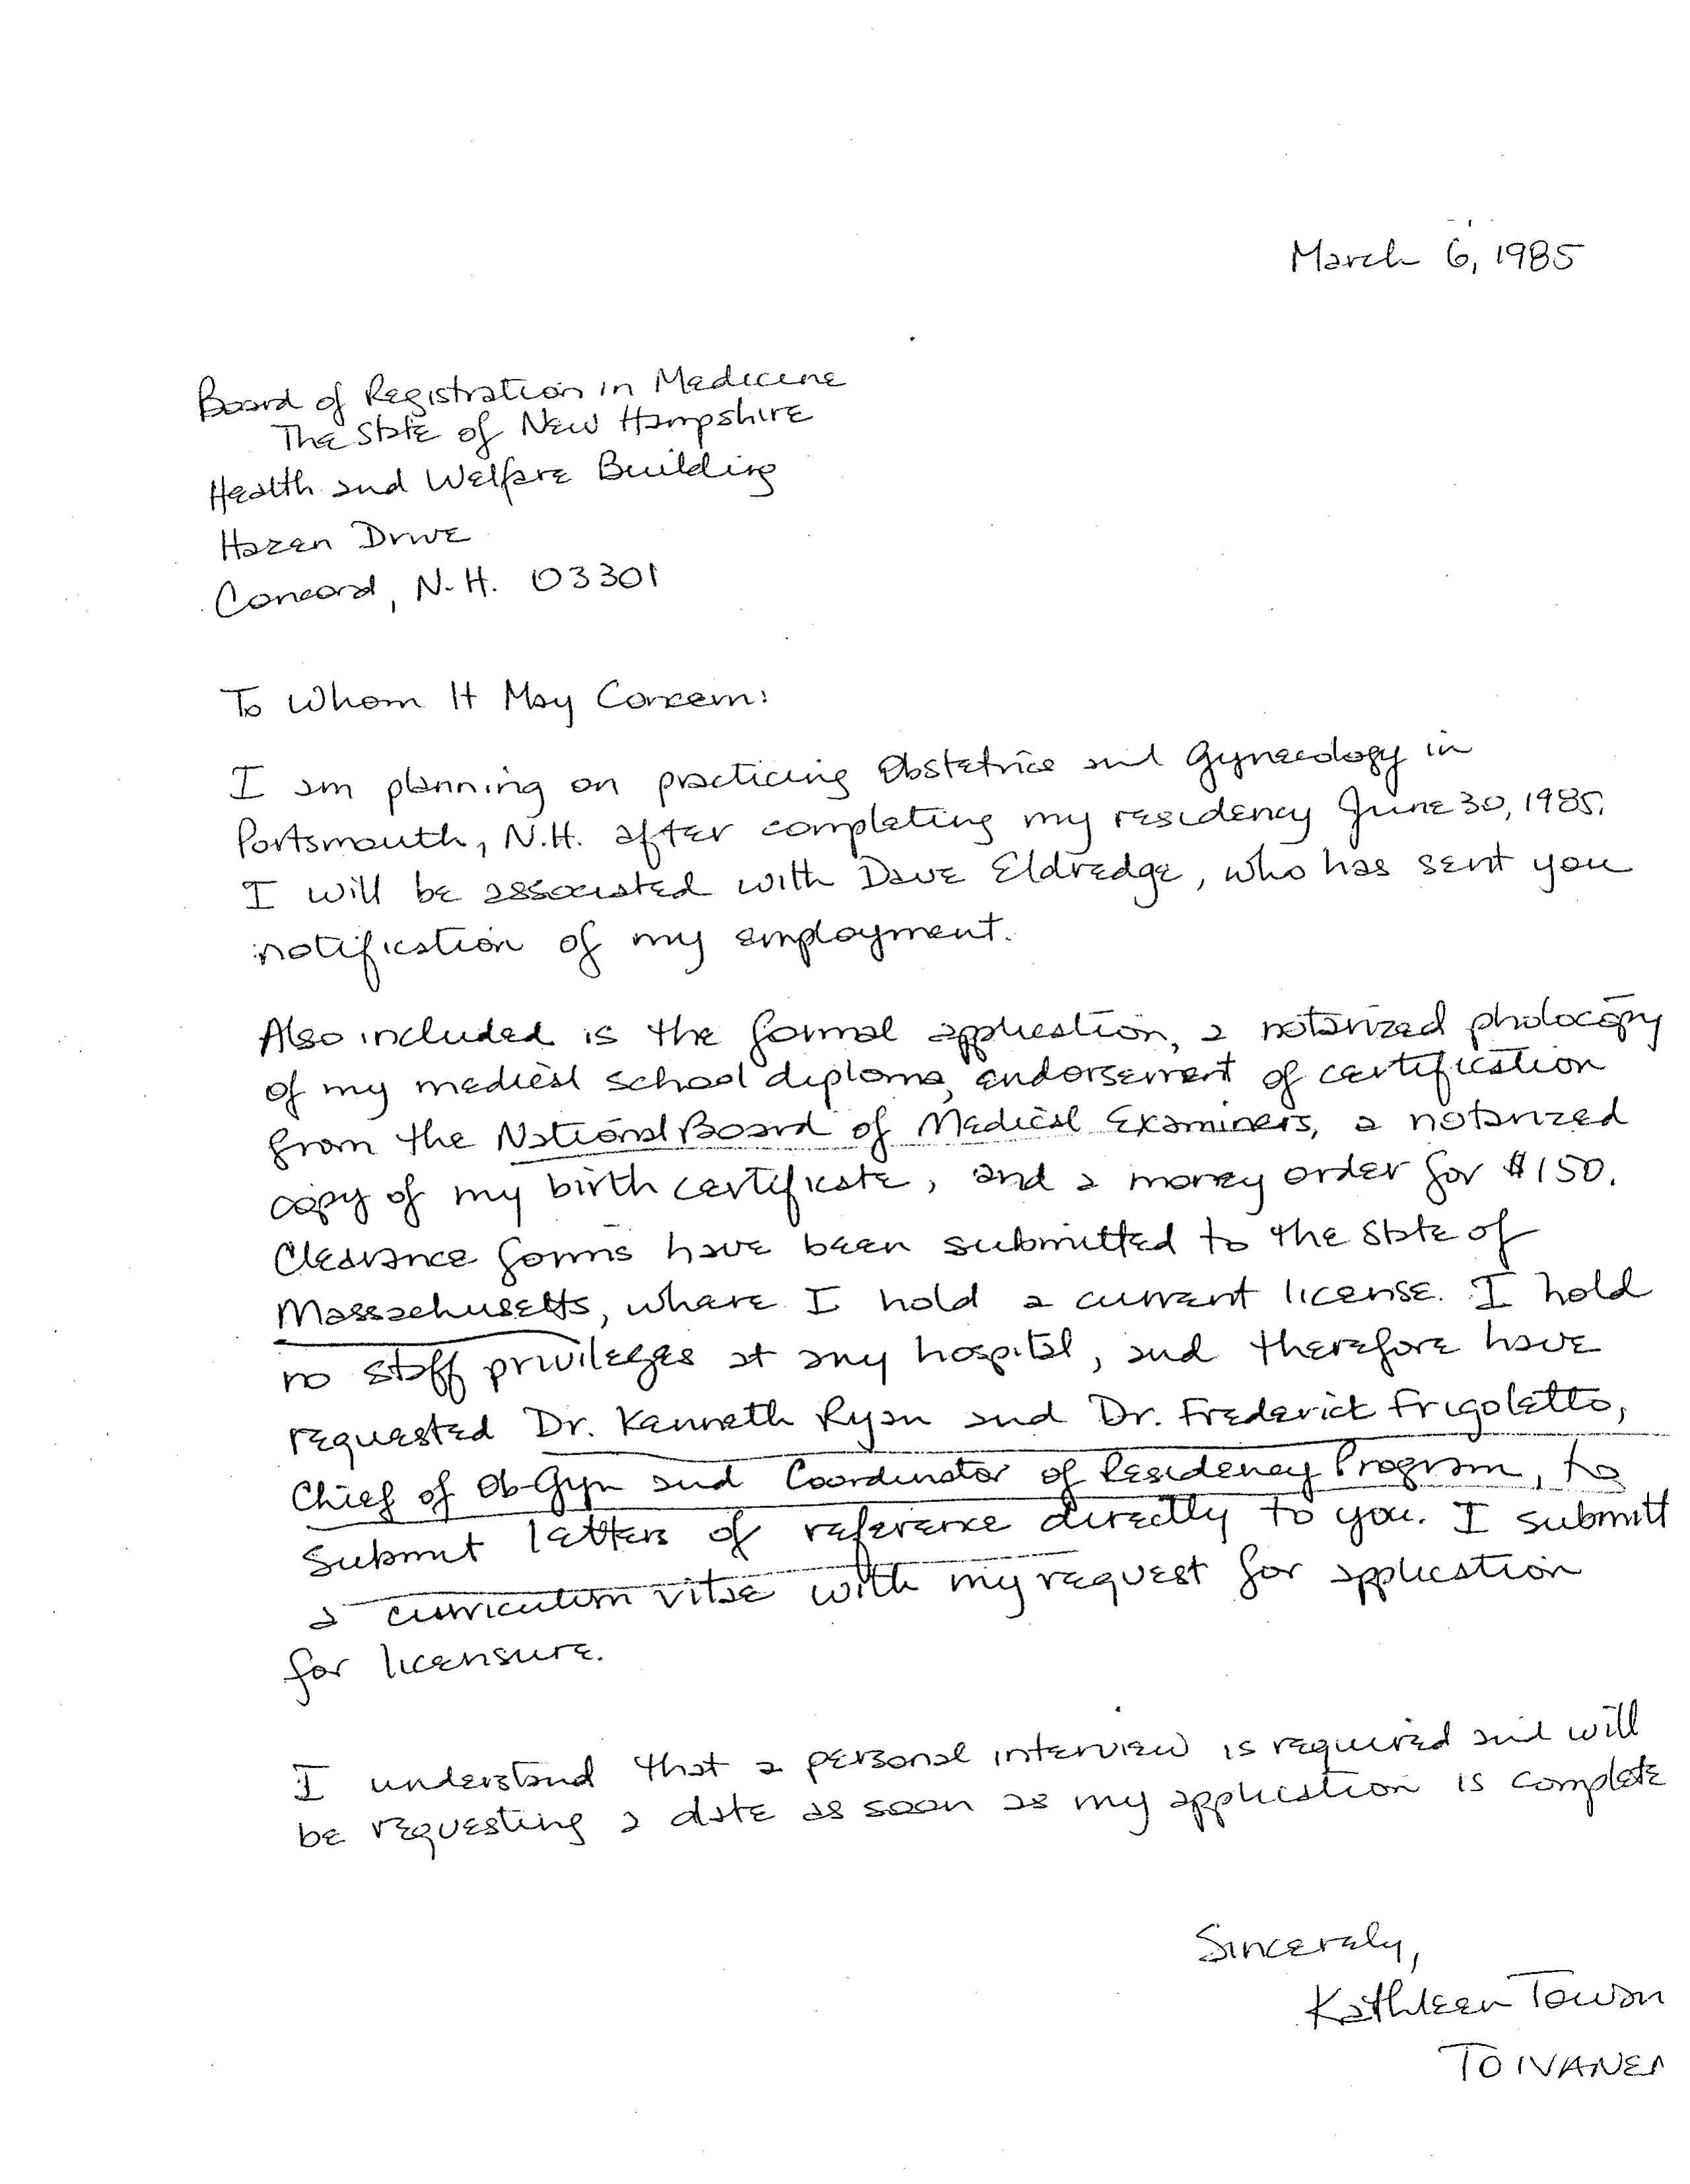 March 6, 1985
Board of Registration in Medicine
The State of New Hampshire
Health and Welfare Building
Hazen Drive
Concord, N.H. 03301
To Whom It May Concern:
I am planning on practicing Obstetrics and Gynecology in
Portsmouth, N.H. after completing my residency June 30, 1985.
I will be associated with Dave Eldredge, who has sent you
notification of my employment.
Also included is the formal application, a notarized photocopy
of my medical school diploma, endorsement of certification
from the National Board of Medical Examiners, a notarized
copy of my birth certificate, and a money order for $150.
Clearance forms have been submitted to the State of
Massachusetts, where I hold a current license. I hold
no staff privileges at any hospital, and therefore have
requested Dr. Kenneth Ryan and Dr. Frederick Frigoletto,
Chief of Ob-Gyn and Coordinator of Residency Program, to
submit letters of reference directly to you. I submitt
a curriculum vitae with my request for application
for licensure.
I understand that a personal interview is required and will
be requesting a date as soon as my application is complete
Sincerely,
Kathleen Toivan
TOIVANEN